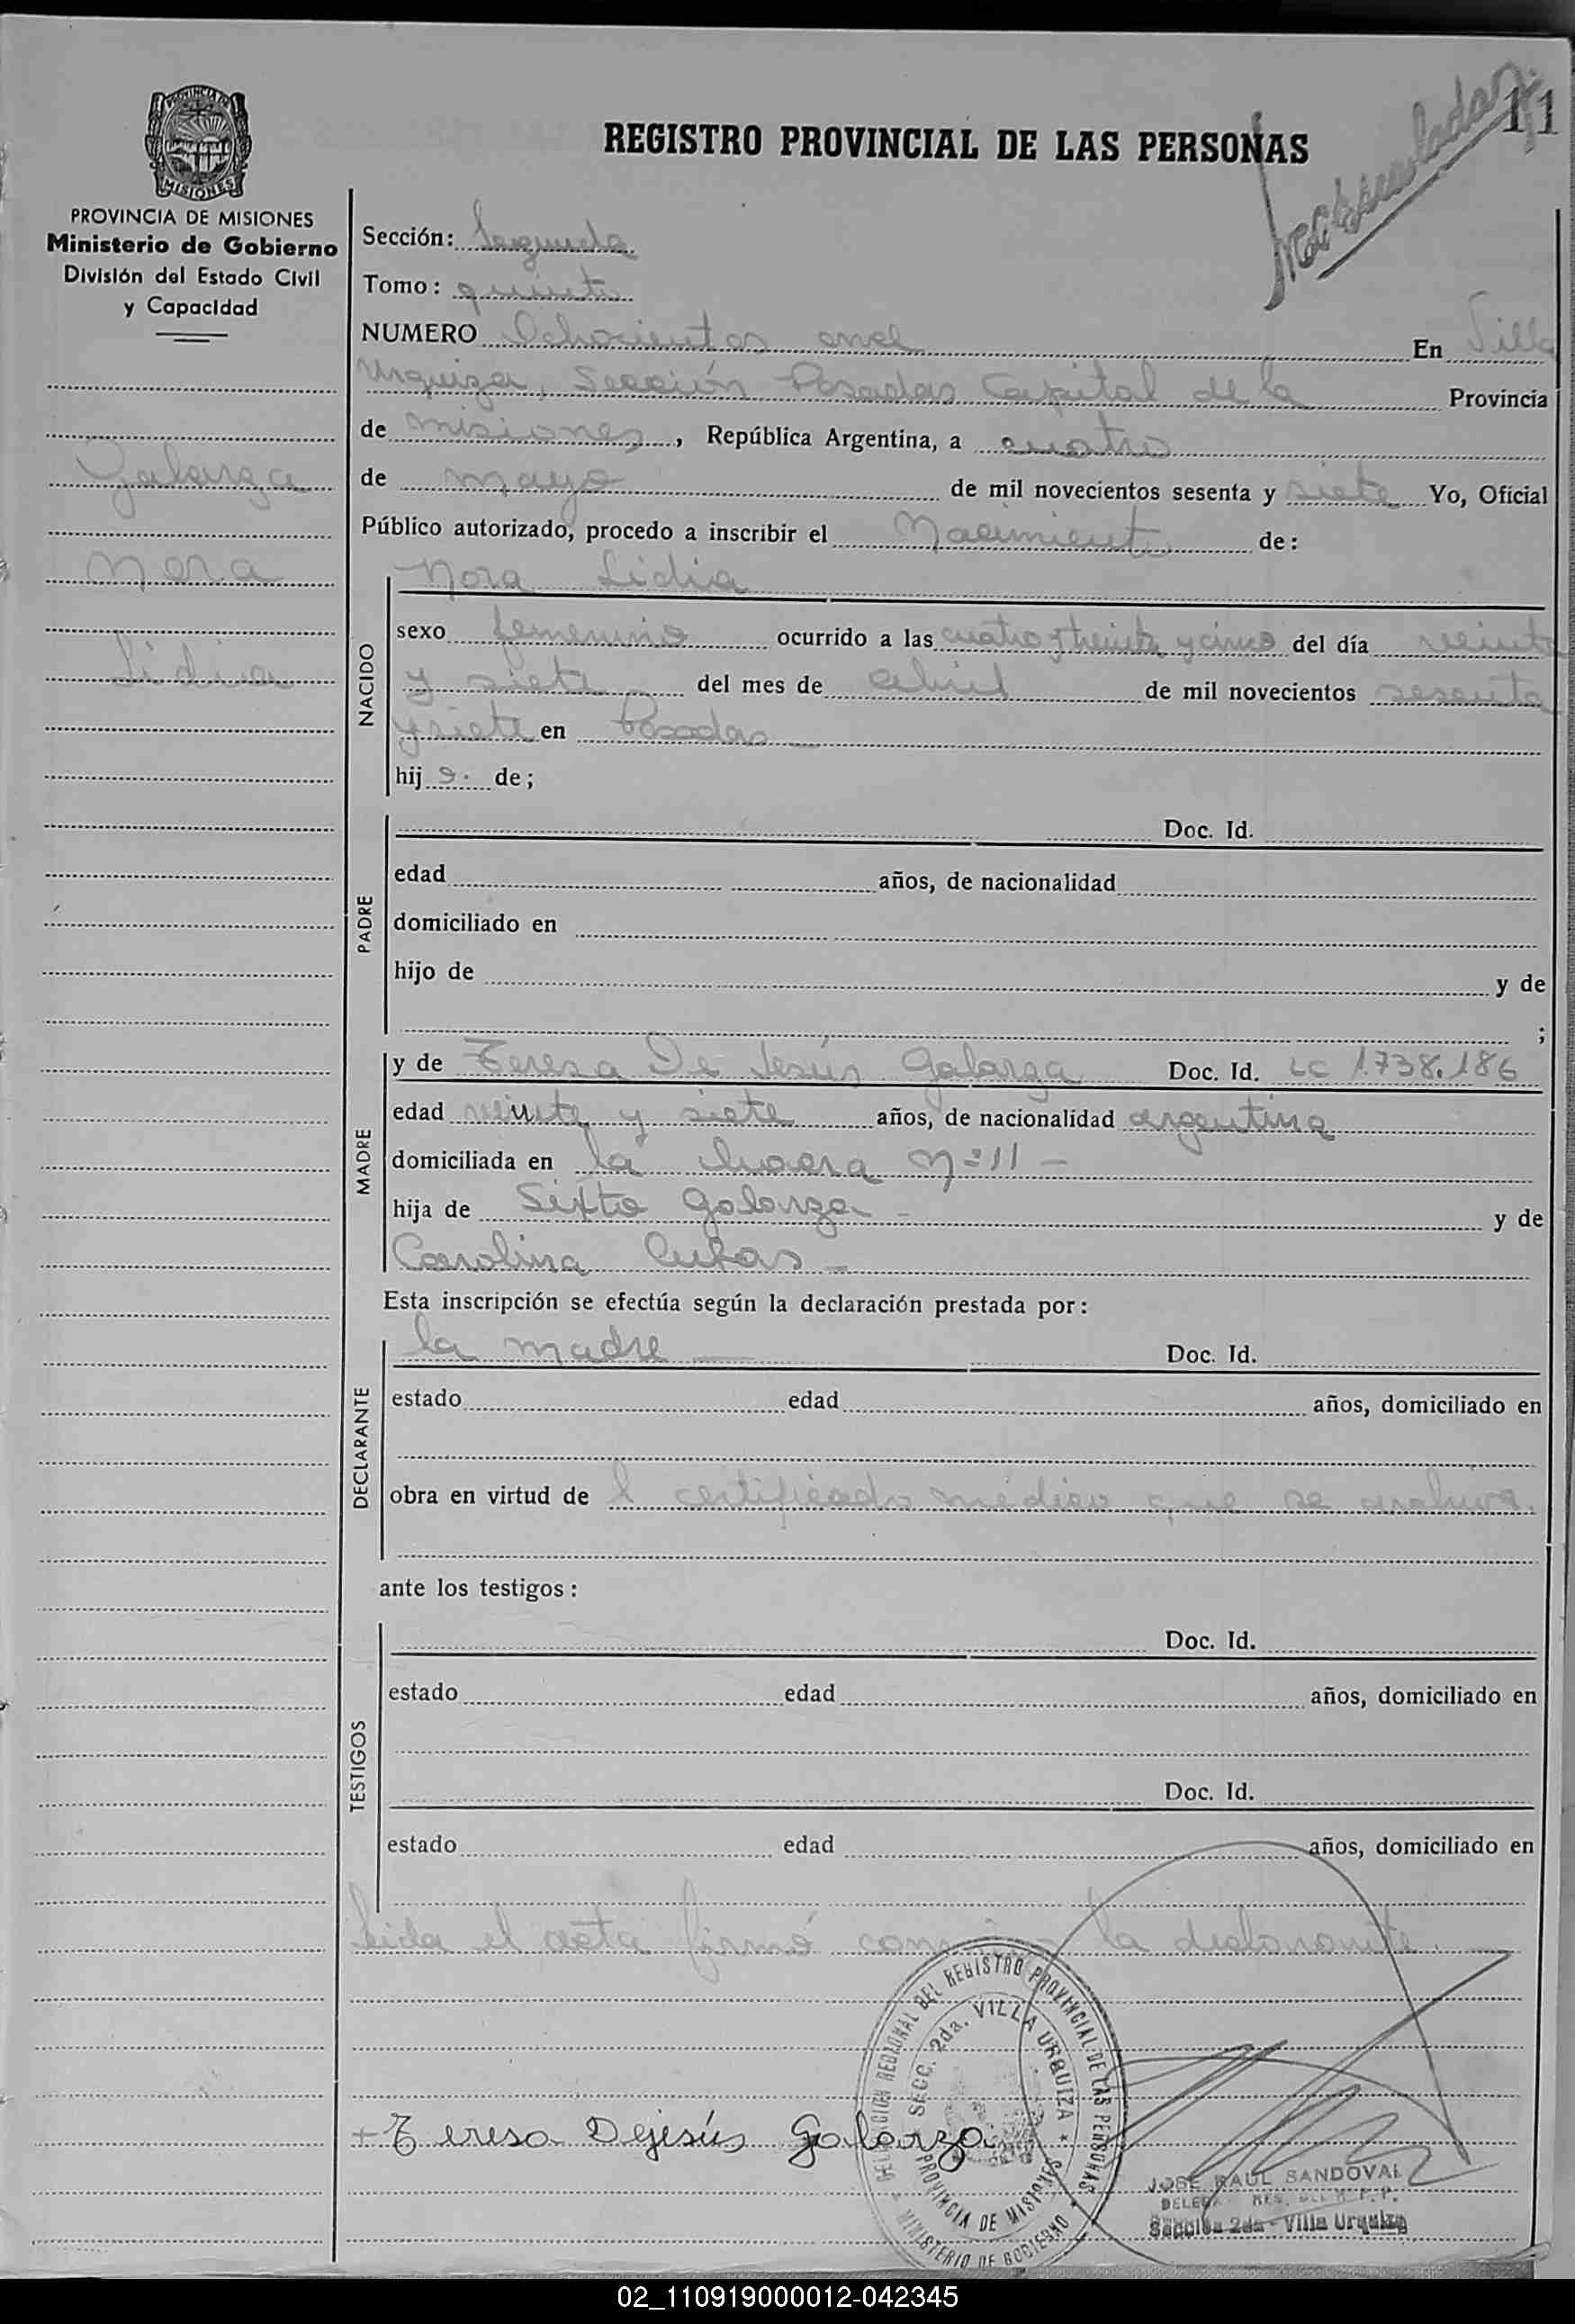 11
Matriculada
PROVINCIA DE
MISIONES
PROVINCIA DE MISIONES
Ministerio de Gobierno
División del Estado Civil
y Capacidad
Galarza
Nora
Lidia
REGISTRO PROVINCIAL DE LAS PERSONAS
Sección: Segunda
Tomo: quinto
NUMERO Ochocientos once En Villa
Urquiza, Sección Posadas Capital de la Provincia
de misiones, República Argentina, a cuatro
de mayo de mil novecientos sesenta y siete Yo, Oficial
Público autorizado, procedo a inscribir el Nacimiento de:
NACIDO
Nora Lidia
sexo femenino ocurrido a las cuatro y treinta y cinco del día veinte
y siete del mes de abril de mil novecientos sesenta
y siete en Posadas —
hij a. de;
PADRE
Doc. Id.
edad años, de nacionalidad
domiciliado en
hijo de y de
;
MADRE
y de Teresa De Jesús Galarza Doc. Id. LC 1.738.186
edad veinte y siete años, de nacionalidad argentina
domiciliada en la chacra Nº 11 —
hija de Sixto Galarza — y de
Carolina Cubas —
Esta inscripción se efectúa según la declaración prestada por:
DECLARANTE
la madre — Doc. Id.
estado edad años, domiciliado en
obra en virtud de l certificado médico que se archiva.
ante los testigos:
TESTIGOS
Doc. Id.
estado edad años, domiciliado en
Doc. Id.
estado edad años, domiciliado en
Leida el acta firmó conmigo la declarante
DELEGACION REGIONAL DEL REGISTRO PROVINCIAL DE LAS PERSONAS
SECC. 2da. VILLA URQUIZA
PROVINCIA DE MISIONES
MINISTERIO DE GOBIERNO
+ Teresa Dejesús Galarza
JOSE RAUL SANDOVAL
Sección 2da - Villa Urquiza
02_110919000012-042345